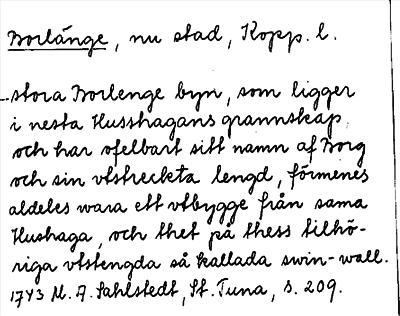 Borlänge, nu stad, Kopp. l.
stora Borlenge byn, som ligger
i nesta Husshagans grannskap
och har ofelbart sitt namn af Borg
och sin vtstreckta lengd, förmenes
aldeles wara ett vtbygge från sama
Hushaga, och thet på thess tilhö-
riga vtstengda så kallada swin-wall.
1743 M. A. Sahlstedt, St. Tuna, s. 209.